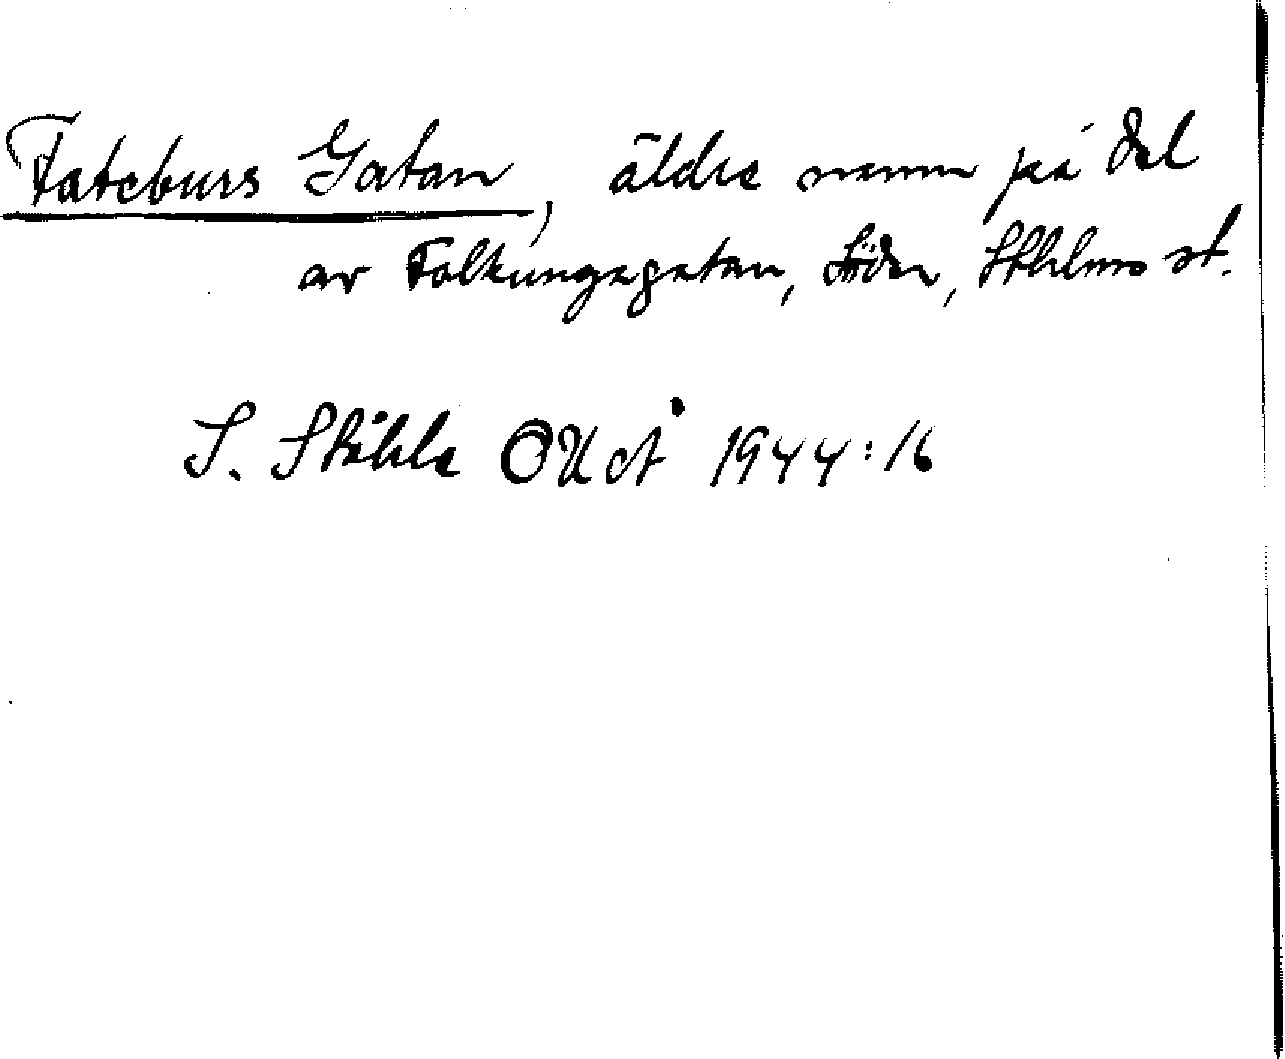 Fateburs Gatan, äldre namn på del
av Folkungagatan, Söder, Sthlms st.
S. Ståhle OUÅ 1944:16